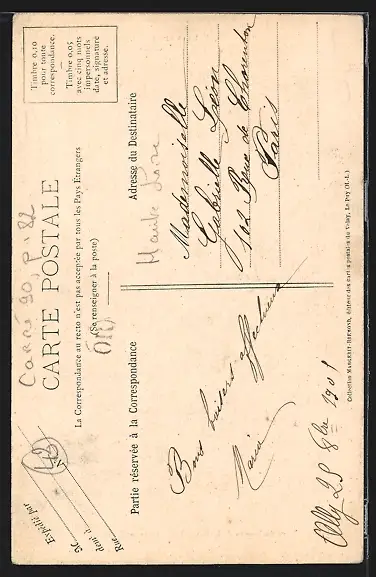 Timbre 0,10
pour toute
correspondance.
Timbre 0,05
avec cinq mots
impersonnels
date, signature
et adresse.
Carré 90, p. 82
CARTE POSTALE
La Correspondance au recto n'est pas acceptée par tous les Pays Étrangers
(Se renseigner à la poste)
Expédié par
M
dem^t à
Rue
43
Partie réservée à la Correspondance
Adresse du Destinataire
Haute Loire
Bons baisers affectueux
Maria
Ally 25 8bre 1901
Mademoiselle
Gabrielle Léon
102 Rue de Charenton
Paris
Collection MARGERIT-BRÉMOND, éditeur des cartes postales du Velay, Le Puy (H.-L.)